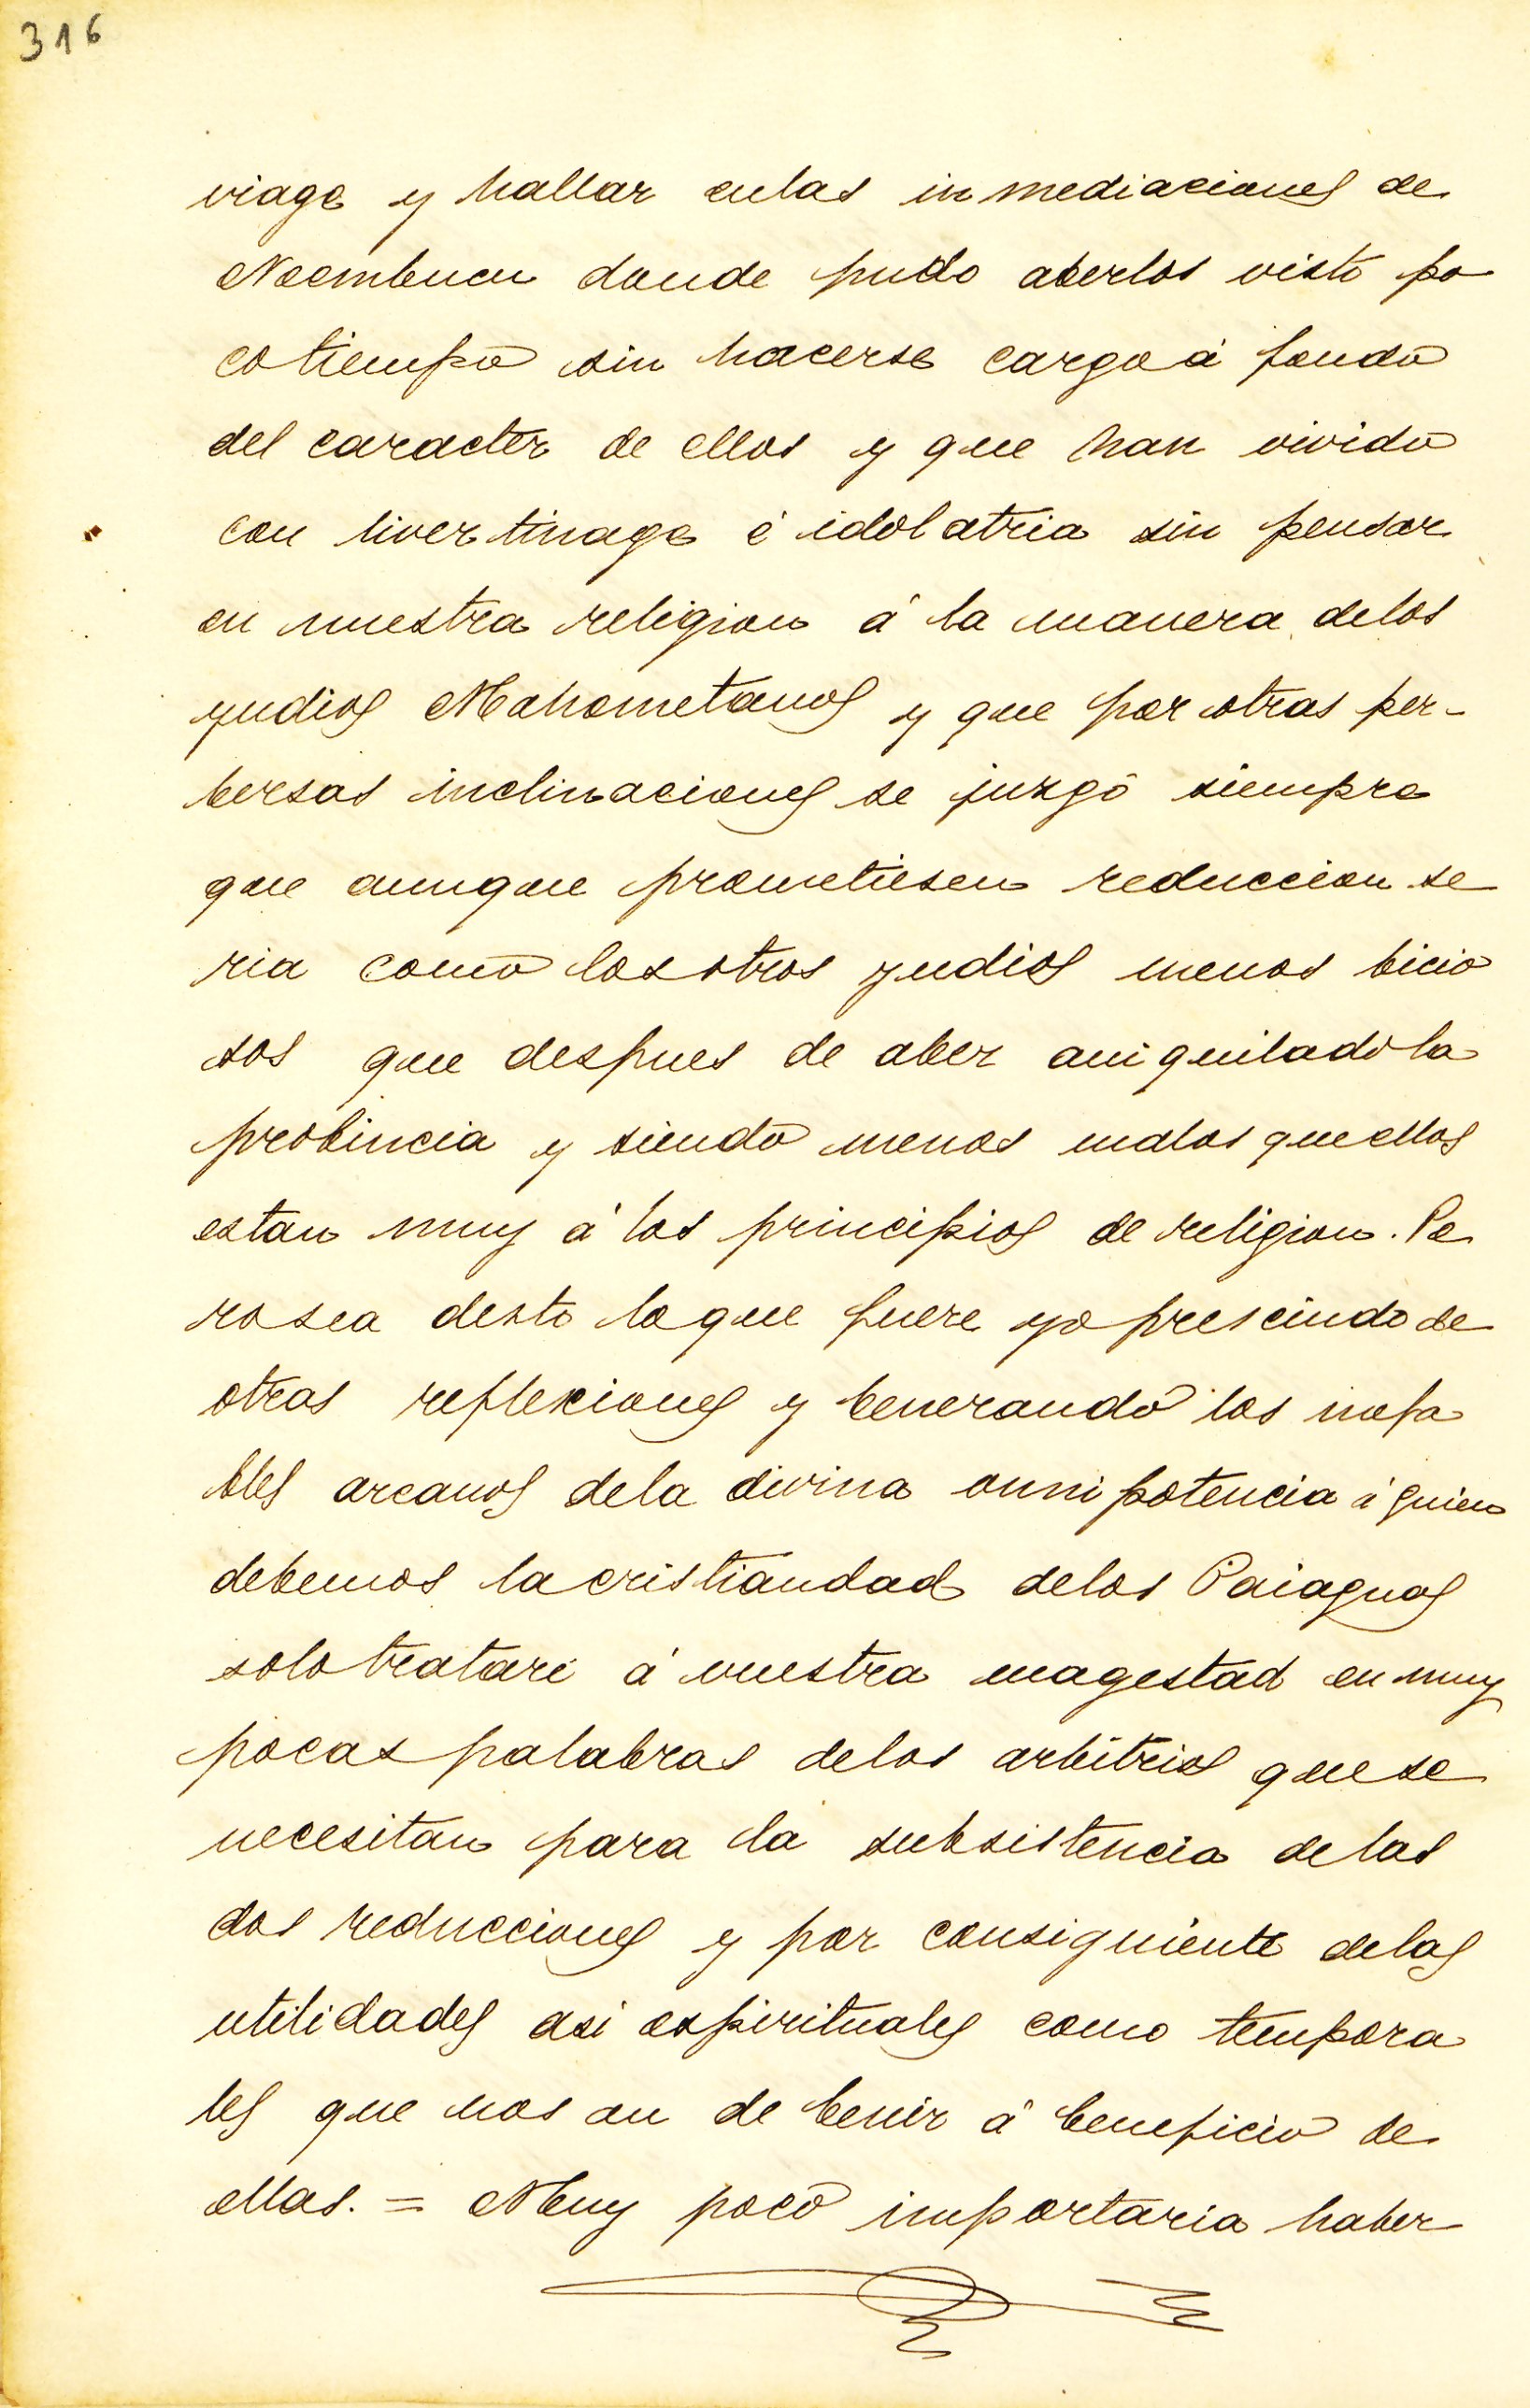 316
viage y hallar enlas inmediaciones de
Neembucu donde pudo aberlos visto po
cotiempo sin hacerse cargo á fondo
del caracter de ellos y que han vivido
con livertinage é idolatria sin pensar
en nuestra religion á la manera delos
yudios Mahometanos y que por otras per-
bersas inclinaciones se juzgó siempre
que aunque prometiesen reduccion se
ria como los otros yudios menos bicio
sos que despues de aber aniquilado la
probincia y siendo menos malos que ellos
estan muy á los principios de religion. Pe
ro sea desto lo que fuere yo prescindo de
otras reflexiones y benerando los inefa
bles arcanos dela divina onnipotencia á quien
debemos la cristiandad delos Paiaguas
solo trataré á vuestra magestad en muy
pocas palabras delos arbitrios que se
necesitan para la subsistencia de las
dos reducciones y por consiguiente delas
utilidades asi espirituales como tempora
les que nos an de benir á beneficio de
ellas. = Muy poco importaria haber